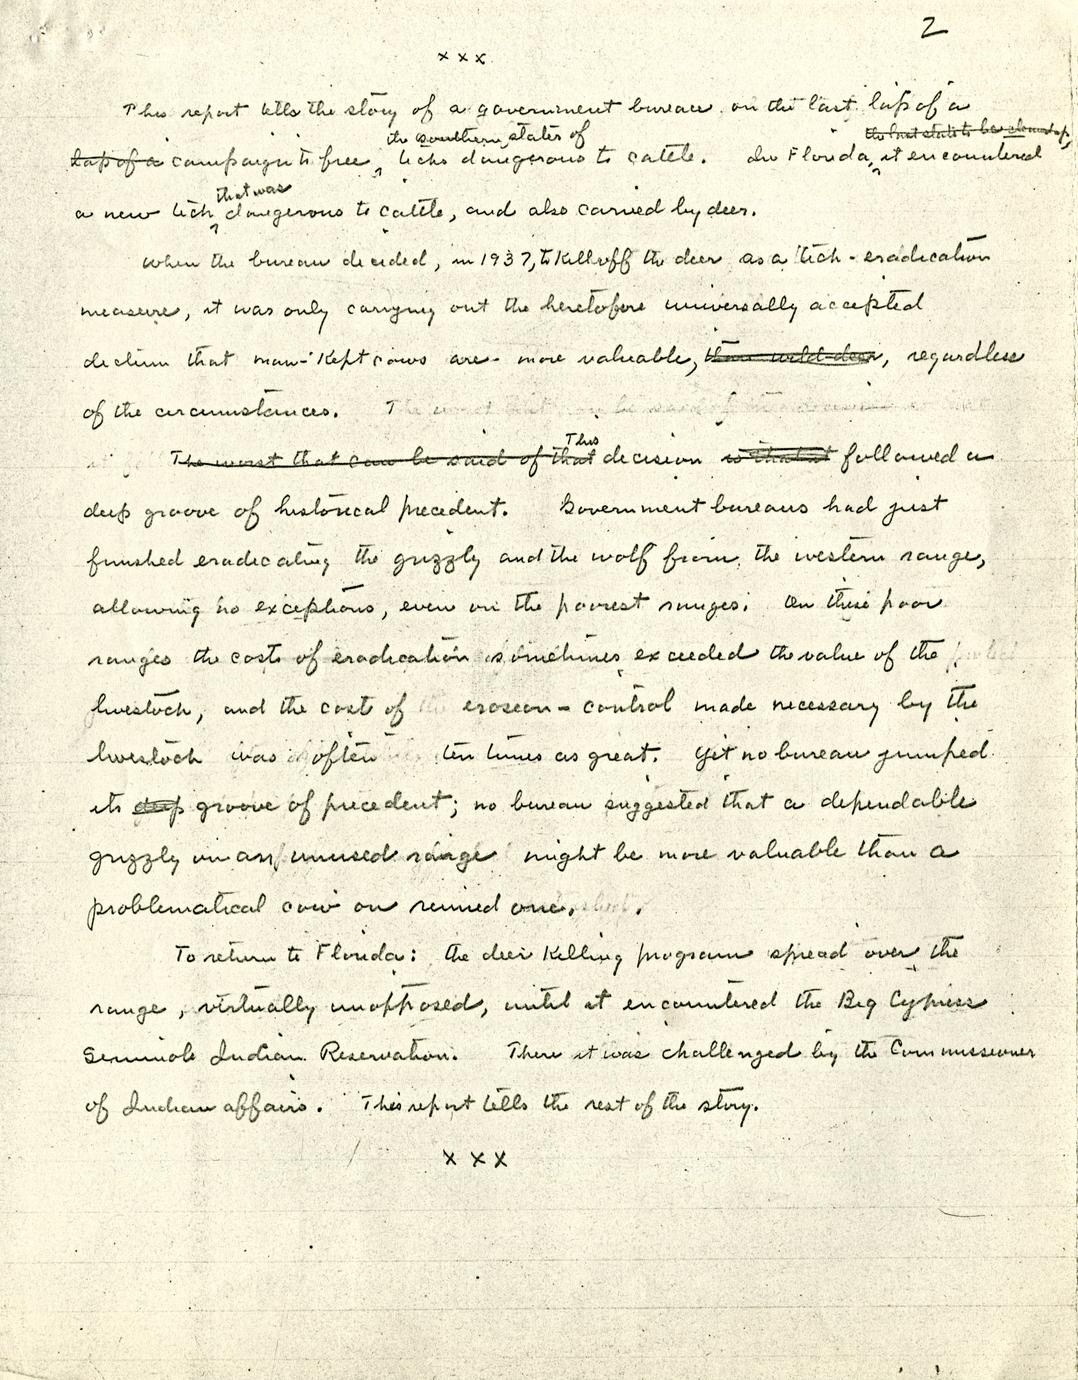 2
x x x
This report tells the story of a government bureau on the last lap of a
the southern states of
the last state to be cleaned up,
lap of a campaign to free ticks dangerous to cattle. In Florida, it encountered
that was
a new tick dangerous to cattle, and also carried by deer.
When the bureau decided, in 1937, to kill off the deer as a tick-eradication
measure, it was only carrying out the heretofore universally accepted
dictum that man-kept cows are more valuable, than wild deer, regardless
of the circumstances. The worst that can be said of this decision
This
The worst that can be said of that decision is that it followed a
deep groove of historical precedent. Government bureaus had just
finished eradicating the grizzly and the wolf from the western range,
allowing no exceptions, even on the poorest ranges. On these poor
ranges the costs of eradication sometimes exceeded the value of the
livestock, and the cost of erosion-control made necessary by the
livestock was often ten times as great. Yet no bureau jumped
its deep groove of precedent; no bureau suggested that a dependable
grizzly on an unused range might be more valuable than a
problematical cow on ruined one.
To return to Florida: the deer killing program spread over the
range, virtually unopposed, until it encountered the Big Cypress
Seminole Indian Reservation. There it was challenged by the Commissioner
of Indian affairs. This report tells the rest of the story.
x x x